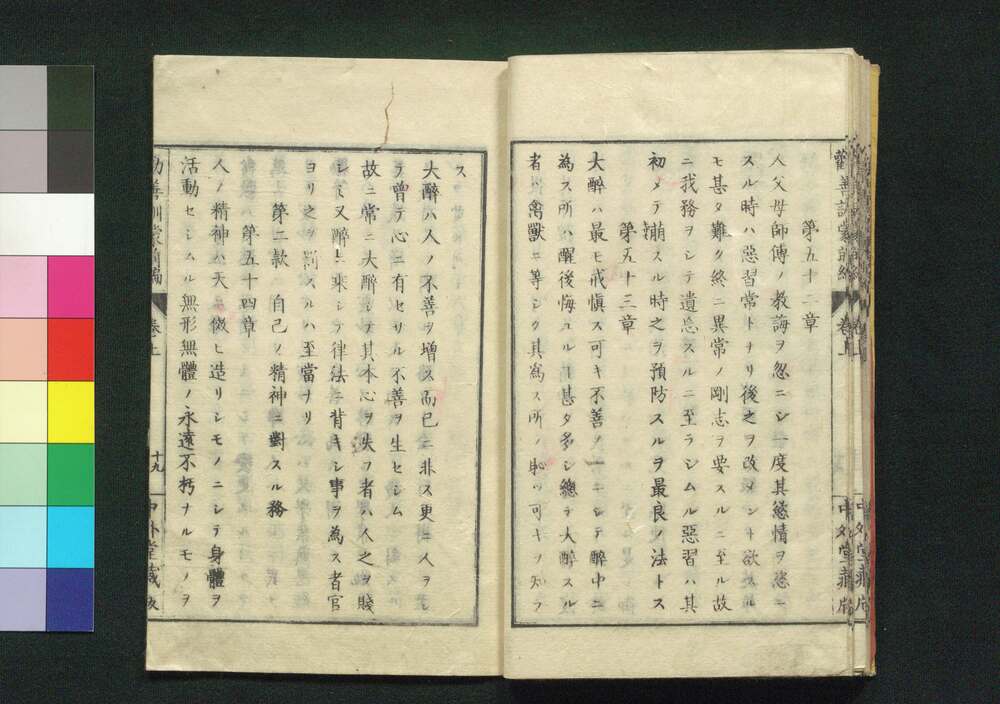 第五十二章
人父母師傅ノ教誨ヲ忽ニシ一度其慾情ヲ恣ニ
スル時ハ惡習常トナリ後之ヲ改メント欲スル
モ甚タ難ク終ニ異常ノ剛志ヲ要スルニ至ル故
ニ我務ヲシテ遺忘スルニ至ラシムル惡習ハ其
初メテ萠スル時之ヲ預防スルヲ最良ノ法トス
第五十三章
大醉ハ最モ戒愼ス可キ不善ノ一ニシテ醉中ニ
為ス所ハ醒後悔ユル甚タ多シ總テ大醉スル
者ハ禽獸ニ等シク其為ス所ノ恥ツ可キヲ知ラ
ス
大醉ハ人ノ不善ヲ增ス而已ニ非ス更ニ人ヲシ
テ曾テ心ニ有セサル不善ヲ生セシム
故ニ常ニ大醉シテ其本心ヲ失フ者ハ人之ヲ賤
シミ又醉ニ乘シテ律法ニ背キシ事ヲ為ス者官
ヨリ之ヲ罰スルハ至當ナリ
第二款 自己ノ精神ニ對スル務
第五十四章
人ノ精神ハ天ニ倣ヒ造リシモノニシテ身體ヲ
活動セシムル無形無體ノ永遠不朽ナルモノヲ
勸善訓蒙前編 卷上 十九 中外堂藏板